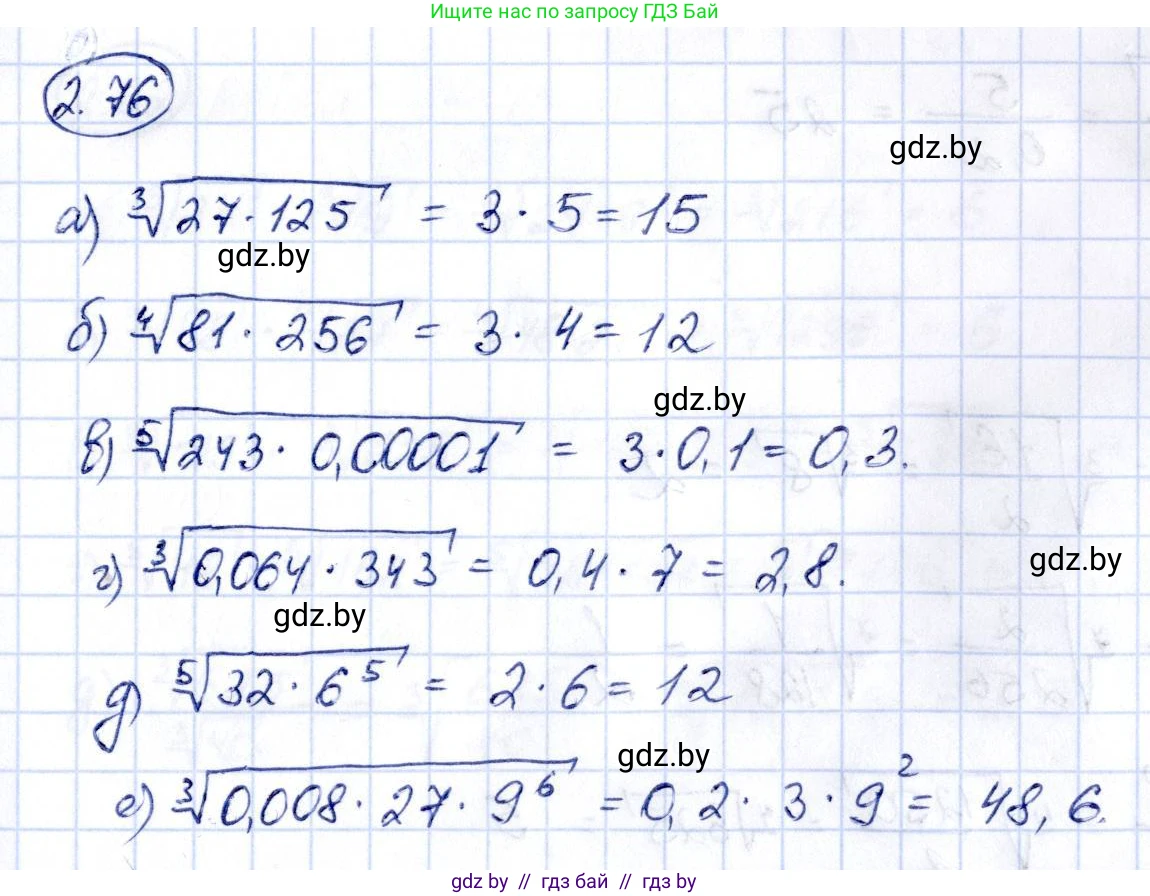 Ищите нас по запросу ГДЗ Бай
2.76
gdz.by
а) ∛(27·125) = 3·5=15
gdz.by
б) ∜(81·256) = 3·4=12
gdz.by
в) ⁵√(243·0,00001) = 3·0,1=0,3.
г) ∛(0,064·343) = 0,4·7=2,8.
gdz.by
gdz.by
д) ⁵√(32·6⁵) = 2·6=12
gdz.by
е) ∛(0,008·27·9⁶) = 0,2·3·9²= 48,6.
gdz by // гдз бай // gdz by